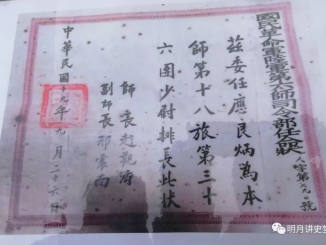 國民革命軍陸軍第六師司令部任命狀
茲委任應民炳為本
師第十八旅第三十
六團少尉排長此狀
師長趙觀濤
副師長邢震南
中華民國十九年九月二十六日
明月讲史堂